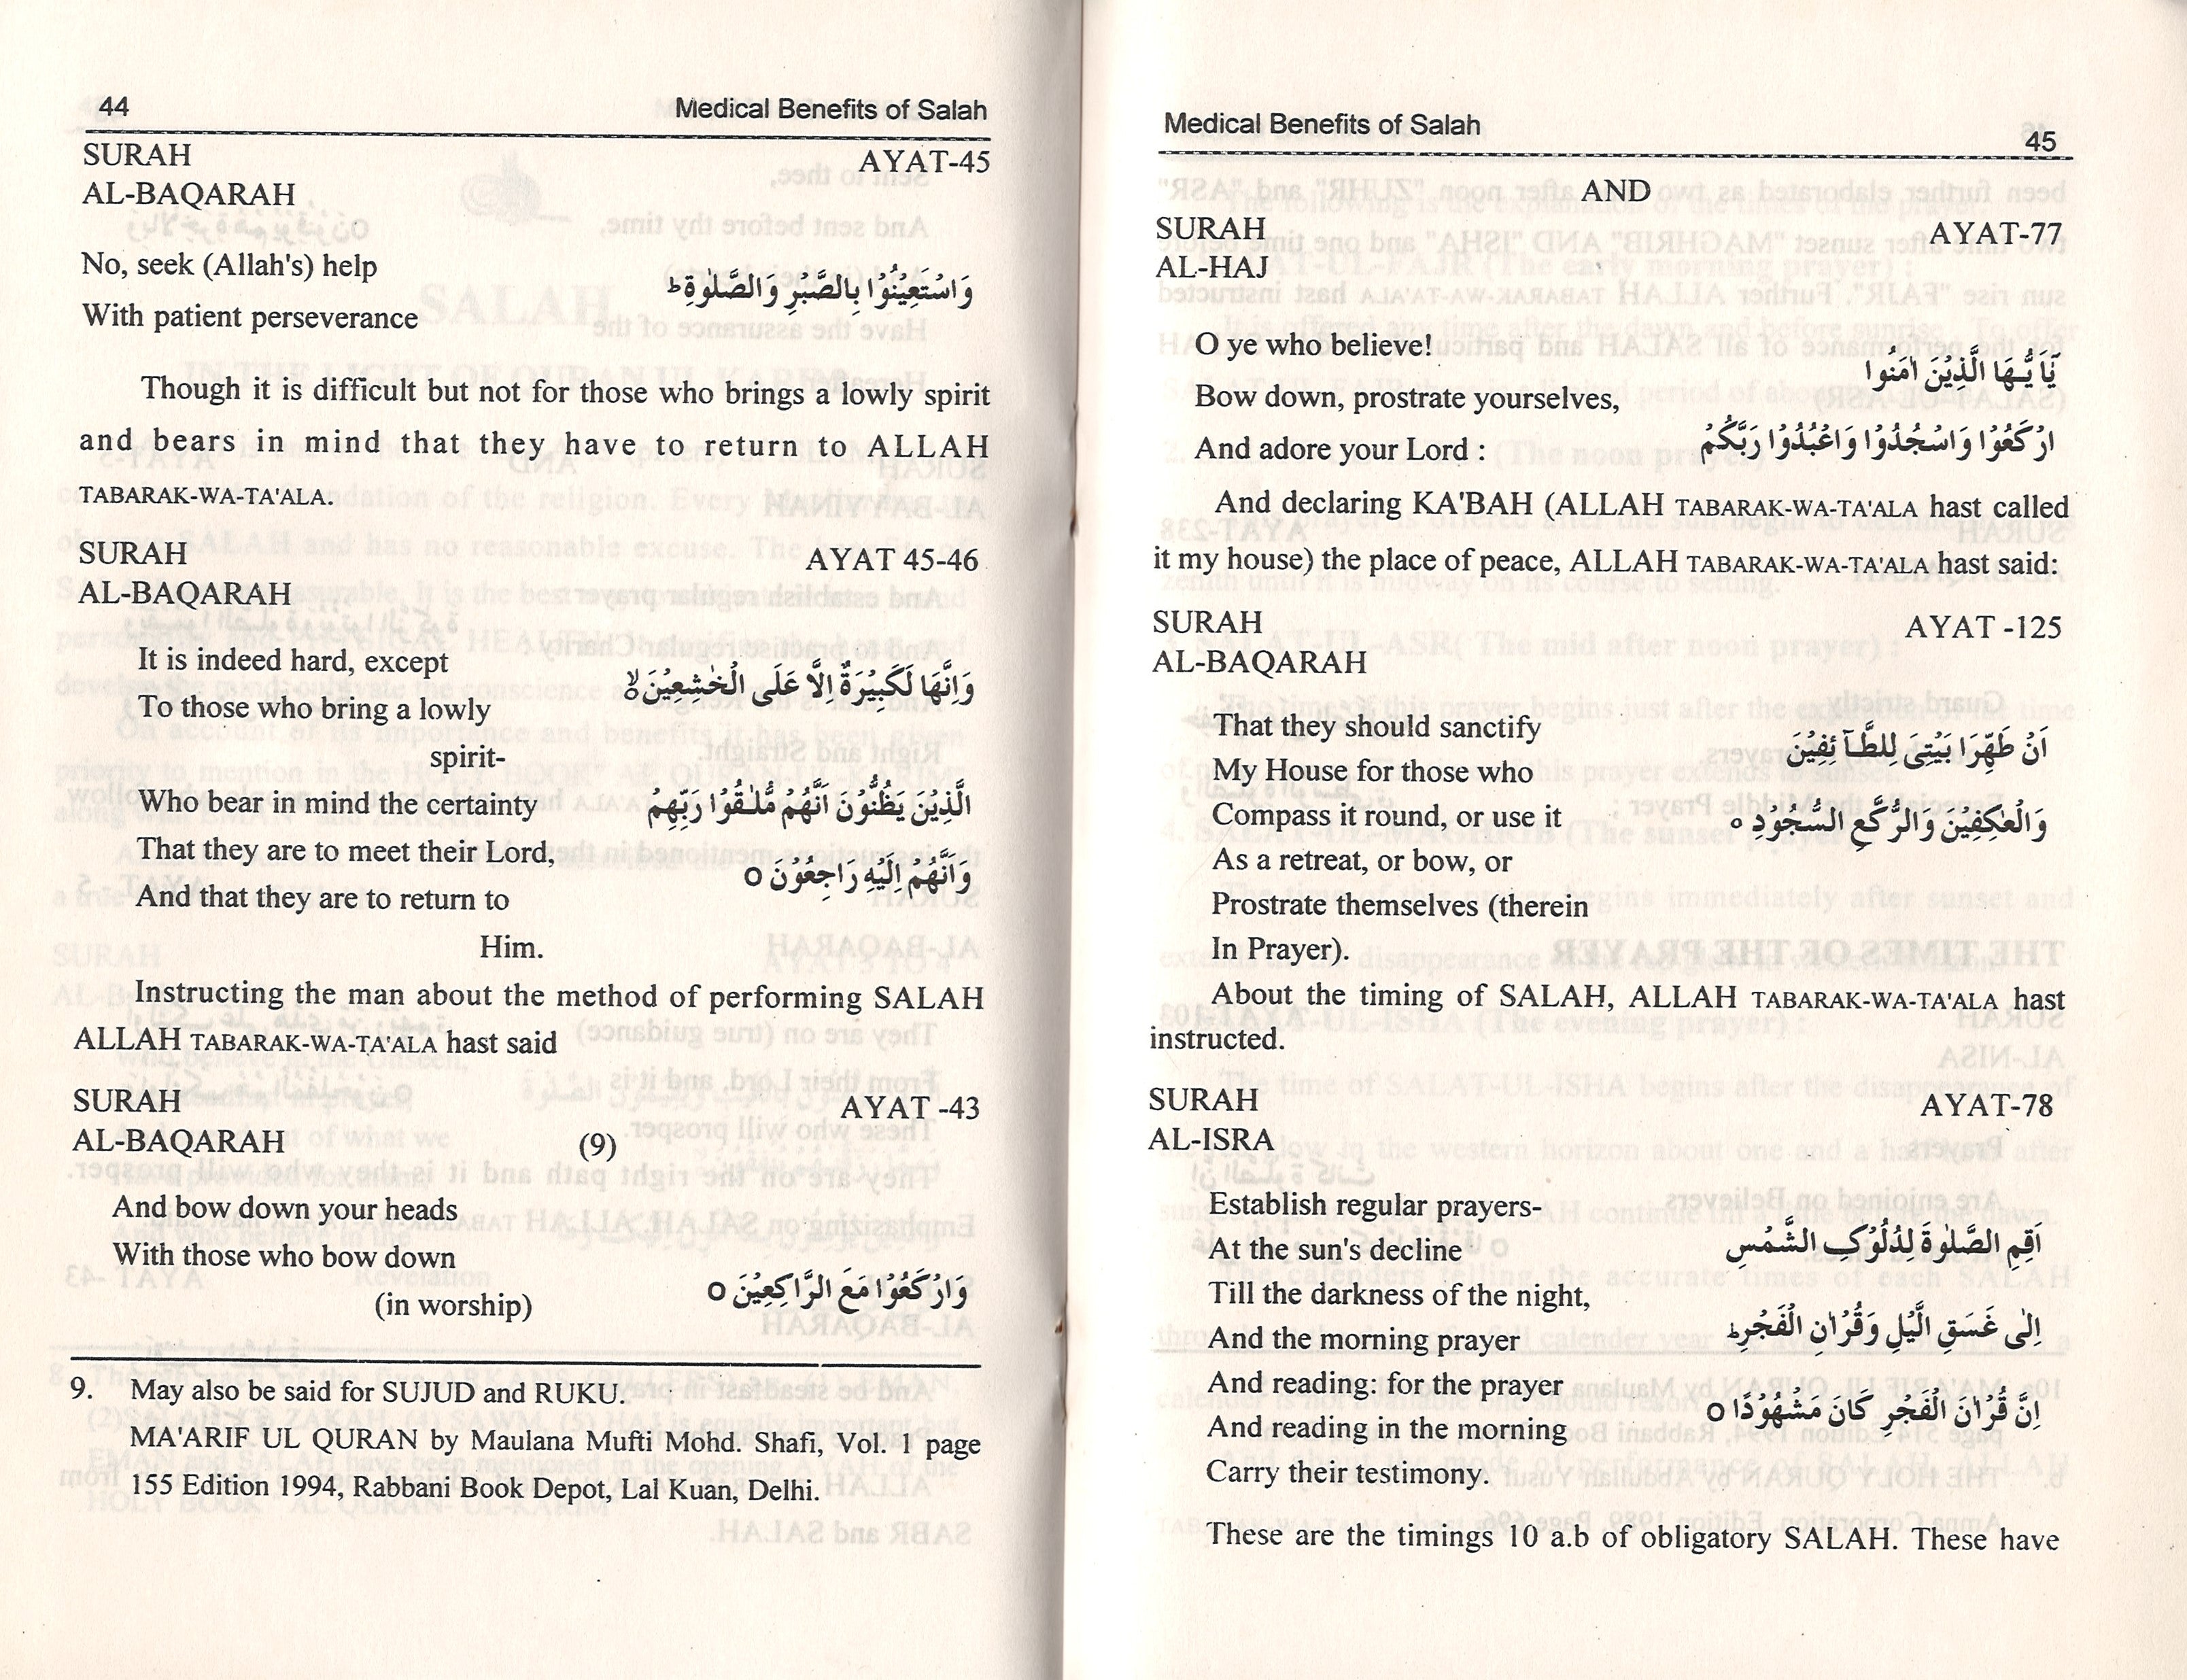 44 Medical Benefits of Salah
SURAH AYAT-45
AL-BAQARAH
No, seek (Allah's) help
وَاسْتَعِيْنُوْا بِالصَّبْرِ وَالصَّلٰوةِ ؕ
With patient perseverance
Though it is difficult but not for those who brings a lowly spirit
and bears in mind that they have to return to ALLAH
TABARAK-WA-TA'ALA.
SURAH AYAT 45-46
AL-BAQARAH
It is indeed hard, except
وَاِنَّهَا لَكَبِيْرَةٌ اِلَّا عَلَى الْخٰشِعِيْنَ ۙ
To those who bring a lowly
spirit-
Who bear in mind the certainty
الَّذِيْنَ يَظُنُّوْنَ اَنَّهُمْ مُّلٰقُوْا رَبِّهِمْ
That they are to meet their Lord,
وَاَنَّهُمْ اِلَيْهِ رَاجِعُوْنَ ○
And that they are to return to
Him.
Instructing the man about the method of performing SALAH
ALLAH TABARAK-WA-TA'ALA hast said
SURAH AYAT -43
AL-BAQARAH (9)
And bow down your heads
With those who bow down
وَارْكَعُوْا مَعَ الرَّاكِعِيْنَ ○
(in worship)
9. May also be said for SUJUD and RUKU.
MA'ARIF UL QURAN by Maulana Mufti Mohd. Shafi, Vol. 1 page
155 Edition 1994, Rabbani Book Depot, Lal Kuan, Delhi.
Medical Benefits of Salah 45
AND
SURAH AYAT-77
AL-HAJ
O ye who believe!
يٰٓاَ يُّهَا الَّذِيْنَ اٰمَنُوا
Bow down, prostrate yourselves,
ارْكَعُوْا وَاسْجُدُوْا وَاعْبُدُوْا رَبَّكُمْ
And adore your Lord :
And declaring KA'BAH (ALLAH TABARAK-WA-TA'ALA hast called
it my house) the place of peace, ALLAH TABARAK-WA-TA'ALA hast said:
SURAH AYAT -125
AL-BAQARAH
That they should sanctify
اَنْ طَهِّرَا بَيْتِىَ لِلطَّآئِفِيْنَ
My House for those who
Compass it round, or use it
وَالْعٰكِفِيْنَ وَالرُّكَّعِ السُّجُوْدِ ○
As a retreat, or bow, or
Prostrate themselves (therein
In Prayer).
About the timing of SALAH, ALLAH TABARAK-WA-TA'ALA hast
instructed.
SURAH AYAT-78
AL-ISRA
Establish regular prayers-
At the sun's decline
اَقِمِ الصَّلٰوةَ لِدُلُوْكِ الشَّمْسِ
Till the darkness of the night,
And the morning prayer
اِلٰى غَسَقِ الَّيْلِ وَقُرْاٰنِ الْفَجْرِ ؕ
And reading: for the prayer
And reading in the morning
اِنَّ قُرْاٰنَ الْفَجْرِ كَانَ مَشْهُوْدًا ○
Carry their testimony.
These are the timings 10 a.b of obligatory SALAH. These have